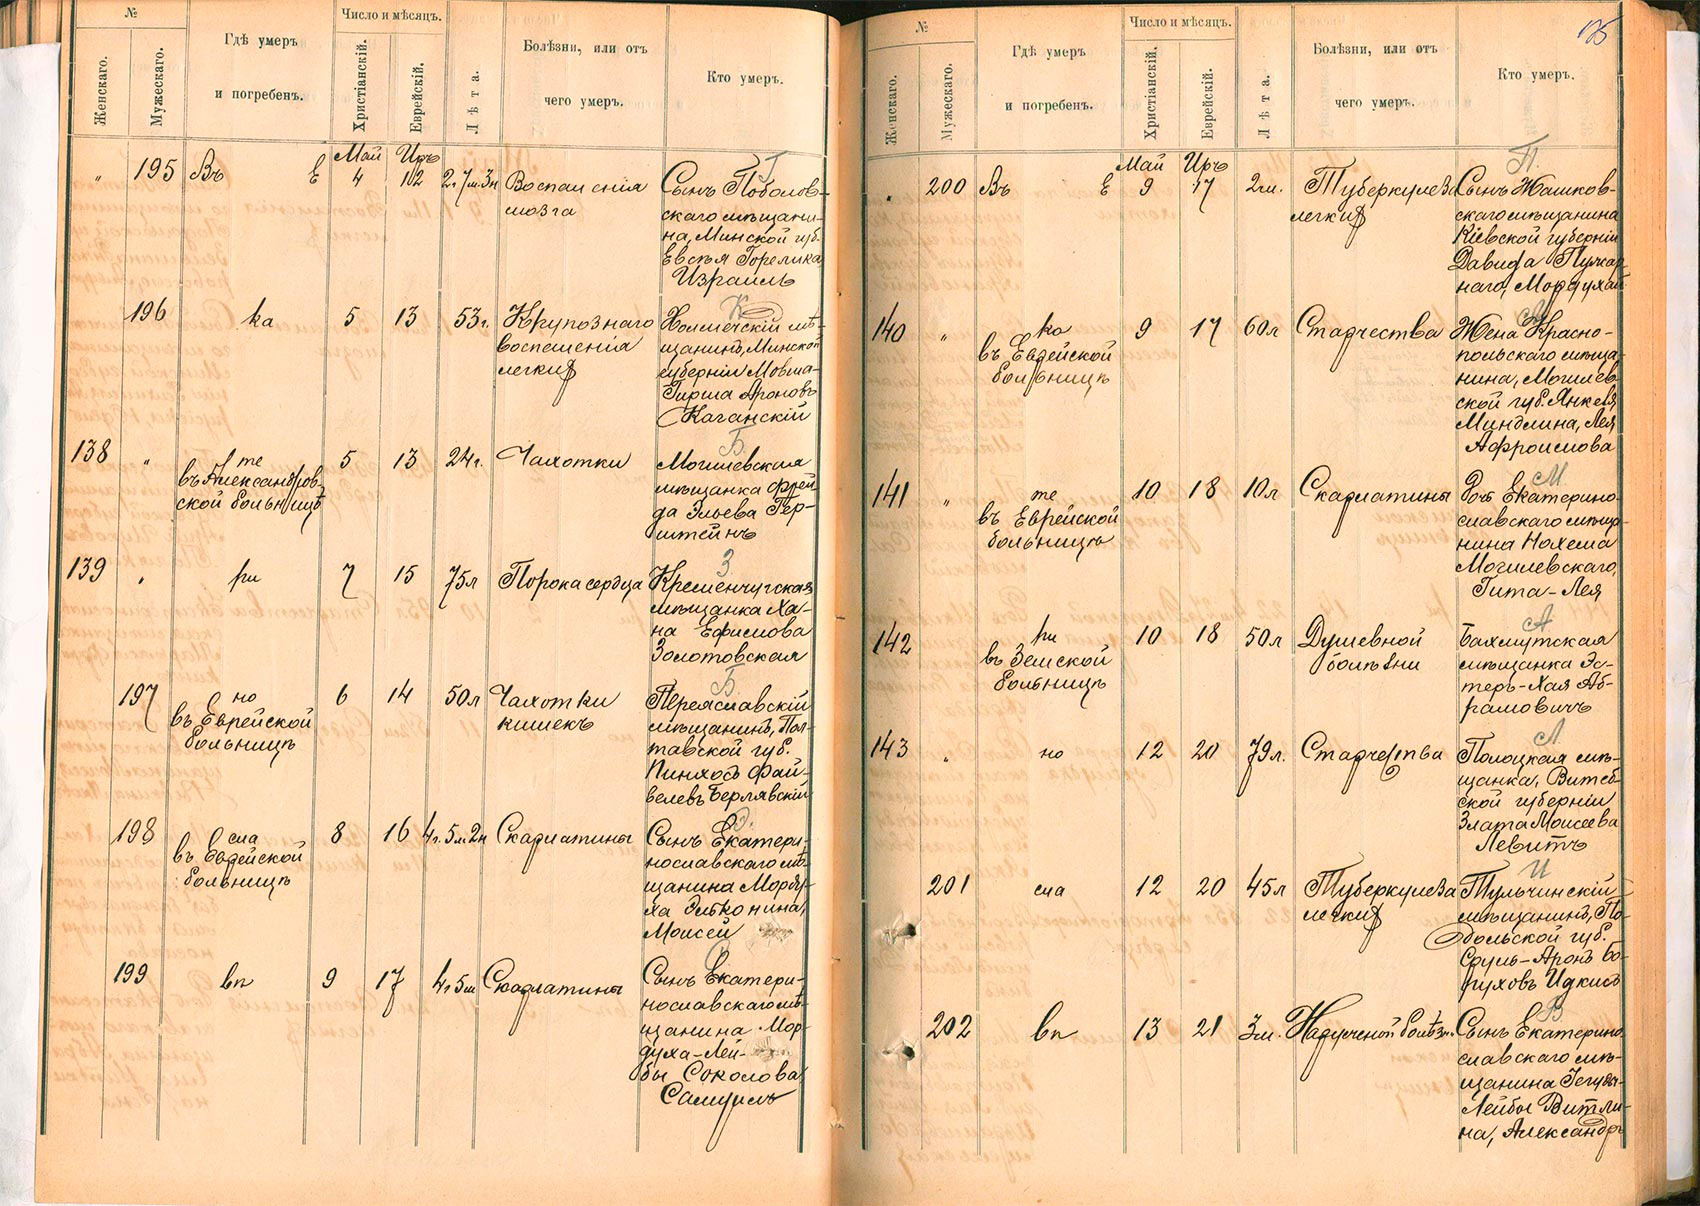 №
Женскаго.
Мужескаго.
Гдѣ умеръ
и погребенъ.
Число и мѣсяцъ.
Христіанскій.
Еврейскій.
Лѣта.
Болѣзни, или отъ
чего умеръ.
Кто умеръ.
Май Иръ
" 195 Въ Е 4 12 2г 7м 3н Воспаленія
мозга
Г
Сынъ Поболов-
скаго мѣщани-
на, Минской губ.
Евсѣя Горелика
Израиль
196 ка 5 13 53г. Крупознаго
воспаленія
легких
К
Холмечскій мѣ-
щанинъ, Минской
губерніи Мовша-
Гирша Ароновъ
Каганскій
138 " те
въ Александров-
ской больницѣ
5 13 24г. Чахотки
Б
Могилевская
мѣщанка Фрей-
да Эльева Бер-
штейнъ
139 " ри 7 15 75л Порока сердца
З
Кременчугская
мѣщанка Ха-
на Ефимова
Золотовская
197 но
въ Еврейской
больницѣ
6 14 50л Чахотки
кишекъ
Б
Переяславскій
мѣщанинъ, Пол-
тавской губ.
Пинхосъ Фай-
велевъ Берлявскій
198 сма
въ Еврейской
больницѣ
8 16 4г. 5м 2н Скарлатины
Э.
Сынъ Екатери-
нославскаго мѣ-
щанина Морду-
ха Эльконина,
Моисей
199 вп 9 17 4г 5м Скарлатины
С
Сынъ Екатери-
нославскаго мѣ-
щанина Мор-
духа-Лей-
бы Соколова
Самуилъ
№
Женскаго.
Мужескаго.
Гдѣ умеръ
и погребенъ.
Число и мѣсяцъ.
Христіанскій.
Еврейскій.
Лѣта.
Болѣзни, или отъ
чего умеръ.
Кто умеръ.
Май Иръ
" 200 Въ Е 9 17 2г.м. Туберкулеза
легких
П.
Сынъ Жашков-
скаго мѣщанина
Кіевской губерніи
Давида Пужар-
наго, Мордухай
140 " ка
въ Еврейской
больницѣ
9 17 60л Старчества
М
Жена Красно-
польскаго мѣща-
нина, Могилев-
ской губ. Янкеля
Миндлина, Лея
Афроимова
141 " те
въ Еврейской
больницѣ
10 18 10л Скарлатины
М
Дочь Екатерино-
славскаго мѣща-
нина Нохема
Могилевскаго,
Гита-Лея
142 ри
въ Земской
больницѣ
10 18 50л Душевной
болѣзни
А
Бахмутская
мѣщанка Эс-
теръ-Хая Аб-
рамовичъ
143 " но 12 20 79л. Старчества
Л
Полоцкая мѣ-
щанка, Витеб-
ской губерніи
Злата Моисеева
Левитъ
201 сма 12 20 45л Туберкулеза
легких
И
Тульчинскій
мѣщанинъ, По-
дольской губ.
Сруль-Аронъ Бо-
руховъ Идкисъ
202 вп 13 21 3м. Падученой болѣзни
В
Сынъ Екатерино-
славскаго мѣ-
щанина Іегуды-
Лейбы Витли-
на, Александръ